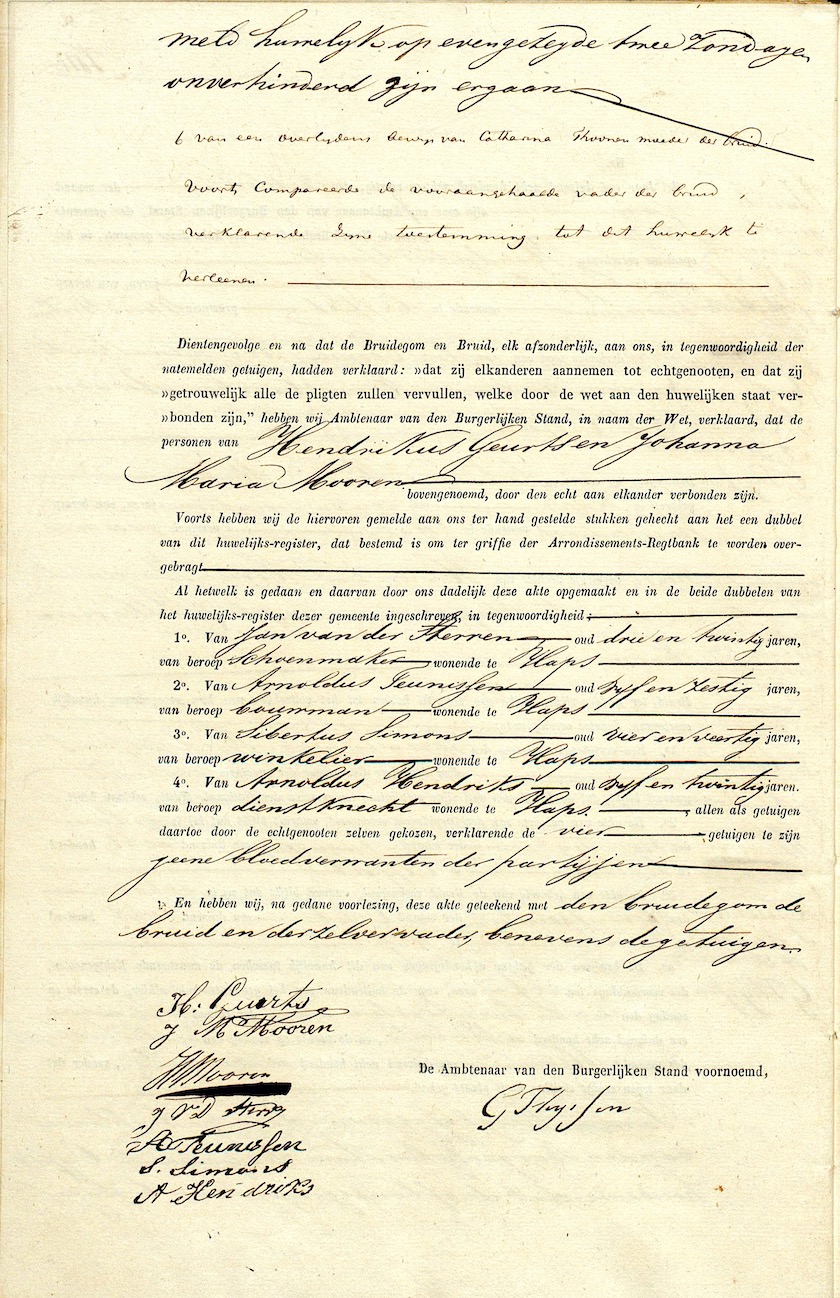 meld huwelyk op evengezegde twee Zondagen
onverhinderd zijn ergaan
6 van een overlydens bewys van Catharina Thoonen moeder der bruid.
Voorts Compareerde de vooraangehaalde vader der bruid,
verklarende Zyne toestemming tot dit huwelyk te
verleenen.
Dientengevolge en na dat de Bruidegom en Bruid, elk afzonderlijk, aan ons, in tegenwoordigheid der
natemelden getuigen, hadden verklaard: »dat zij elkanderen aannemen tot echtgenooten, en dat zij
»getrouwelijk alle de pligten zullen vervullen, welke door de wet aan den huwelijken staat ver-
»bonden zijn,” hebben wij Ambtenaar van den Burgerlijken Stand, in naam der Wet, verklaard, dat de
personen van Hendrikus Geurts en Johanna
Maria Mooren
bovengenoemd, door den echt aan elkander verbonden zijn.
Voorts hebben wij de hiervoren gemelde aan ons ter hand gestelde stukken gehecht aan het een dubbel
van dit huwelijks-register, dat bestemd is om ter griffie der Arrondissements-Regtbank te worden over-
gebragt
Al hetwelk is gedaan en daarvan door ons dadelijk deze akte opgemaakt en in de beide dubbelen van
het huwelijks-register dezer gemeente ingeschreven, in tegenwoordigheid:
1o. Van Jan van der Sterren oud drie en twintig jaren,
van beroep Schoenmaker wonende te Haps
2o. Van Arnoldus Teunissen oud vyf en zestig jaren,
van beroep bouwman wonende te Haps
3o. Van Sibertus Simons oud vier en veertig jaren,
van beroep winkelier wonende te Haps
4o. Van Arnoldus Hendriks oud vyf en twintig jaren.
van beroep dienstknecht wonende te Haps. , allen als getuigen
daartoe door de echtgenooten zelven gekozen, verklarende de vier getuigen te zijn
geene bloedverwanten der partijen
En hebben wij, na gedane voorlezing, deze akte geteekend met den bruidegom de
bruid en derzelver vader, benevens de getuigen.
H: Geurts
J M Mooren
H Mooren
De Ambtenaar van den Burgerlijken Stand voornoemd,
G Thyssen
A Teunissen
S. Simons
A Hendriks